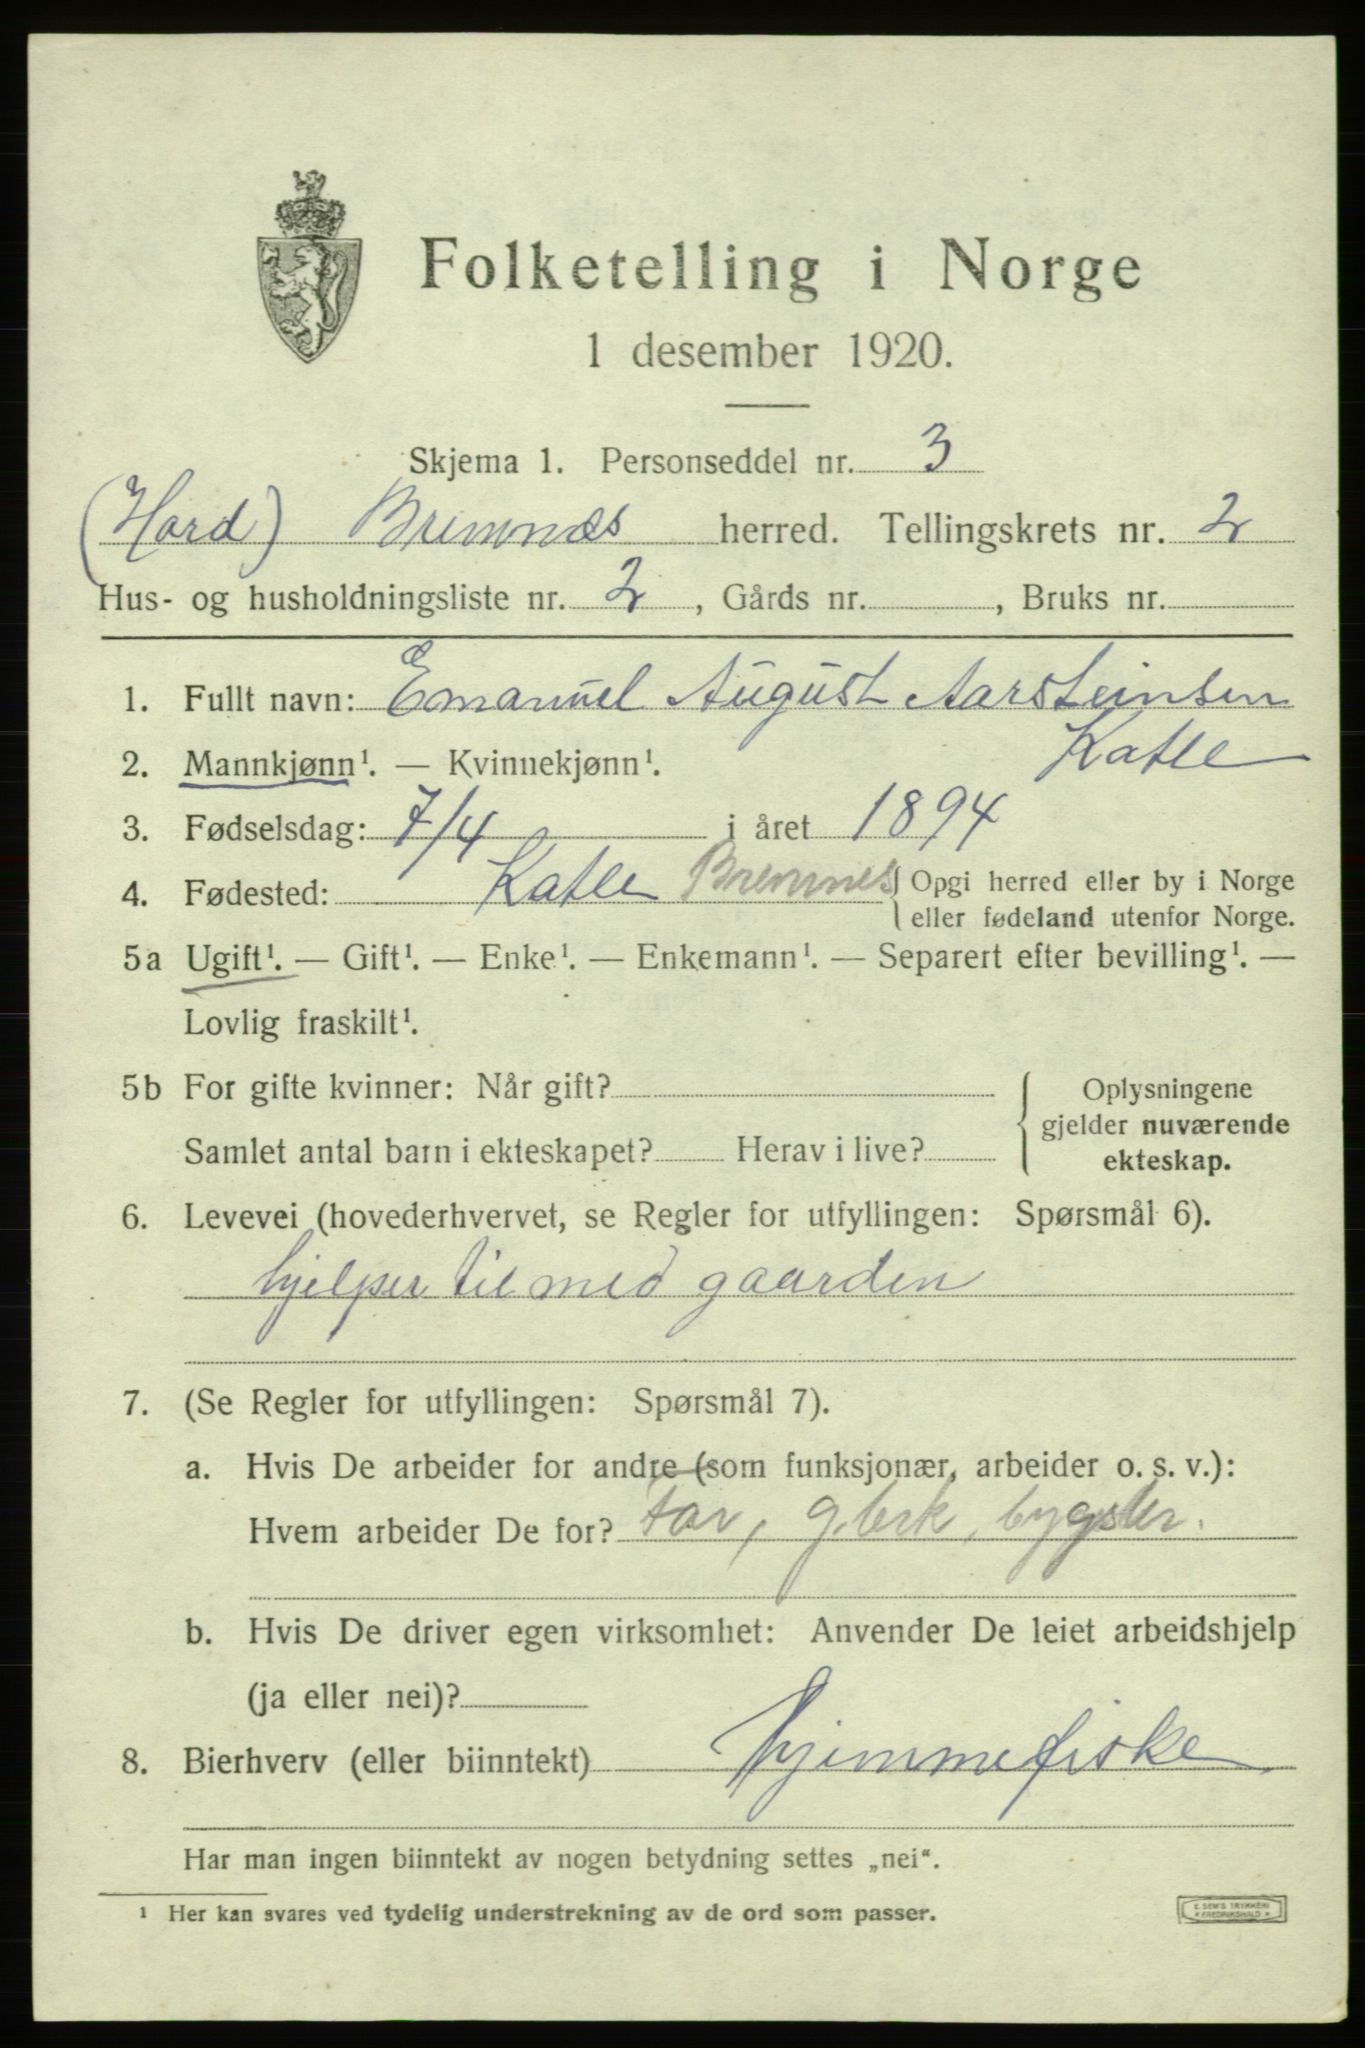 Folketelling i Norge
1 desember 1920.
Skjema 1. Personseddel nr. 3
(Hord) Bremnes herred. Tellingskrets nr. 2
Hus- og husholdningsliste nr. 2, Gårds nr. , Bruks nr.
1. Fullt navn: Emanuel August Aarsteinsen
Katle
2. Mannkjønn¹. — Kvinnekjønn¹.
3. Fødselsdag: 7/4 i året 1894
4. Fødested: Katle Bremnes { Opgi herred eller by i Norge
eller fødeland utenfor Norge.
5a Ugift¹. — Gift¹. — Enke¹. — Enkemann¹. — Separert efter bevilling¹. —
Lovlig fraskilt¹.
5b For gifte kvinner: Når gift?
Samlet antal barn i ekteskapet? Herav i live?
{ Oplysningene
gjelder nuværende
ekteskap.
6. Levevei (hovederhvervet, se Regler for utfyllingen: Spørsmål 6).
hjelper til med gaarden
7. (Se Regler for utfyllingen: Spørsmål 7).
a. Hvis De arbeider for andre (som funksjonær, arbeider o. s. v.):
Hvem arbeider De for? Far, g.brk, bygsler.
b. Hvis De driver egen virksomhet: Anvender De leiet arbeidshjelp
(ja eller nei)?
8. Bierhverv (eller biinntekt) hjemmefiske
Har man ingen biinntekt av nogen betydning settes „nei“.
¹ Her kan svares ved tydelig understrekning av de ord som passer.
E. SEM'S TRYKKERI
* FREDRIKSHALD *